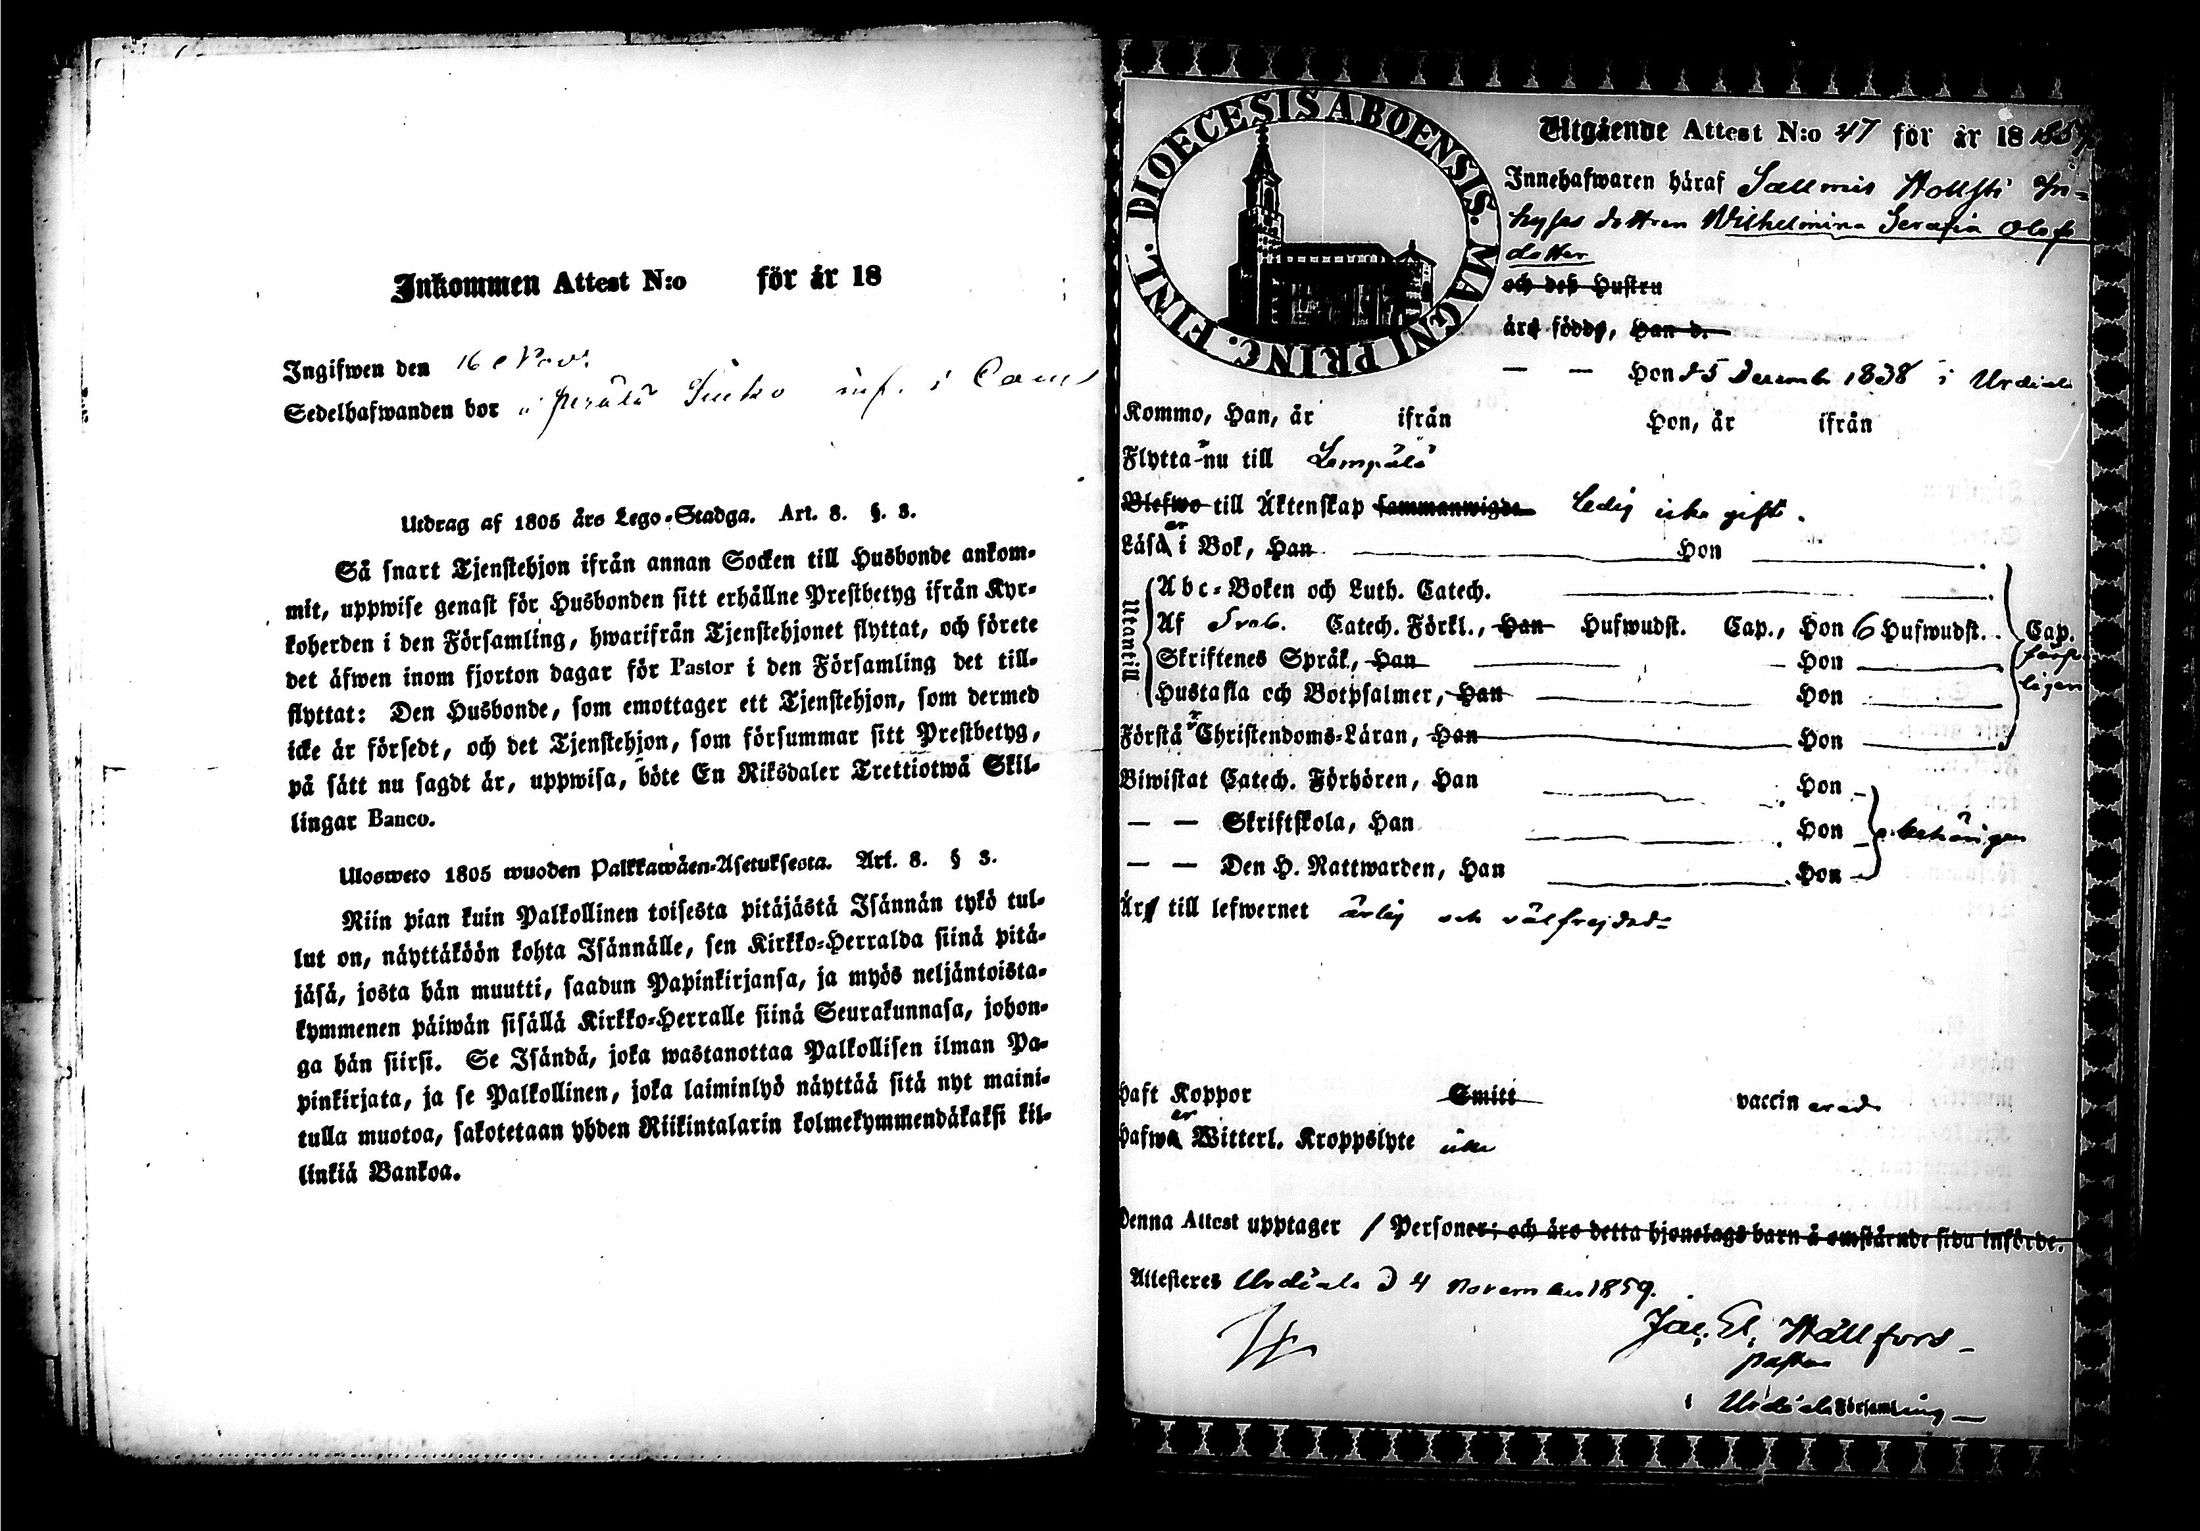 Inkommen Attest N:o för år 18
Ingifwen den 16 Nov.
Sedelhafwanden bor i
Utdrag af 1805 års Lego-Stadga. Art. 8. §. 3.
Så snart Tjenstehjon ifrån annan Socken till Husbonde ankom-
mit, uppwise genast för Husbonden sitt erhållne Prestbetyg ifrån Kyr-
koherden i den Församling, hwarifrån Tjenstehjonet flyttat, och förete
det äfwen inom fjorton dagar för Pastor i den Församling det till-
flyttat: Den Husbonde, som emottager ett Tjenstehjon, som dermed
icke är försedt, och det Tjenstehjon, som försummar sitt Prestbetyg,
på sätt nu sagdt är, uppwisa, böte En Riksdaler Trettiotwå Skil-
lingar Banco.
Ulosweto 1805 wuoden Palkkawäen-Asetuksesta. Art. 8. § 3.
Niin pian kuin Palkollinen toisesta pitäjästä Isännän tykö tul-
lut on, näyttäköön kohta Isännälle, sen Kirkko-Herralda siinä pitä-
jäsä, josta hän muutti, saadun Papinkirjansa, ja myös neljäntoista-
kymmenen päiwän sisällä Kirkko-Herralle siinä Seurakunnasa, johon-
ga hän siirsi. Se Isändä, joka wastanottaa Palkollisen ilman Pa-
pinkirjata, ja se Palkollinen, joka laiminlyö näyttää sitä nyt maini-
tulla muotoa, sakotetaan yhden Riikintalarin kolmekymmendäkaksi kil-
linkiä Bankoa.
DIOECESIS ABOENSIS. MAGNI PRINC. FINL.
Utgående Attest N:o 47 för år 18 1859
Innehafwaren häraf In-
hyses dottren Wilhelmina Serafia Olofs
dotter
och deß Hustru
äro födde, Han d.
— — Hon d 5 December 1838 i Urdiala
Kommo, Han, år ifrån Hon, år ifrån
Flyttar nu till Lempälä
Blefwo till Äktenskap sammanwigde Ledig icke gift.
Läser i Bok, Han Hon
Utantill
Abc-Boken och Luth. Catech.
Af Sveb. Catech. Förkl., Han Hufwudst. Cap., Hon 6 Hufwudst. Cap.
Skriftenes Språk, Han Hon
Hustafla och Botpsalmer, Han Hon
Förstår Christendoms-Läran, Han Hon
Biwistat Catech. Förhören, Han Hon
— — Skriftskola, Han Hon behörigen
— — Den H. Nattwarden, Han Hon
Är till lefwernet ärlig och välfrejdad
Haft Koppor Smitt vaccinerad
Hafwer Witterl. Kroppslyte icke
Denna Attest upptager 1 Personer; och äro detta hjonelags barn å omstående sida införde.
Attesteres Urdiala d 4 November 1859.
Jac. El. Hällfors
pastor
i Urdiala Församling